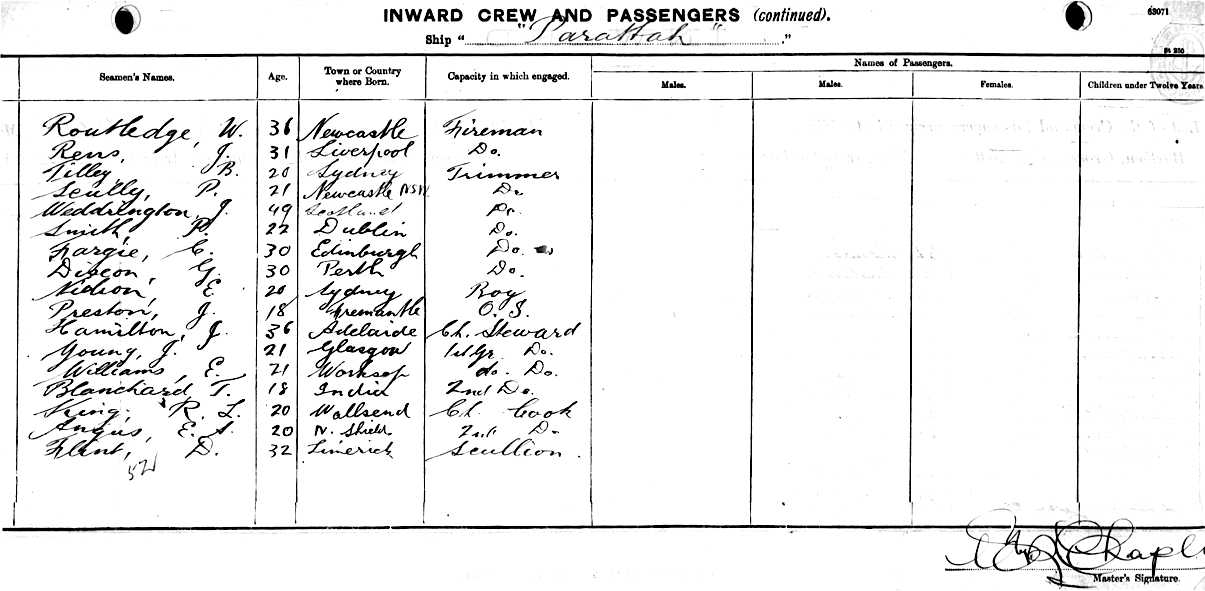 INWARD CREW AND PASSENGERS (continued).
63071
Ship " "Parattah" "
Seamen's Names. Age. Town or Country where Born. Capacity in which engaged. Names of Passengers.
Males. Males. Females. Children under Twelve Years
Routledge, W. 36 Newcastle Fireman
Rens, J. 31 Liverpool Do.
Tilley B. 20 Sydney Trimmer
Scully, P. 21 Newcastle NSW Do
Weddrington, J. 49 Scotland Do.
Smith, P. 22 Dublin Do.
Fargie, C. 30 Edinburgh Do.
Discon, G. 30 Perth Do.
Nielson, E 20 Sydney Boy
Preston, J. 18 Fremantle O.S.
Hamilton, J. 36 Adelaide Ch. Steward
Young, J. 21 Glasgow 1st Gr. Do.
Williams, E. 21 Worksop do. Do.
Blanchard T. 18 India 2nd Do.
King. R. L. 20 Wallsend Ch. Cook
Angus, E. S. 20 N. Shields 2nd Do
Flint, D. 32 Limerick Scullion.
52
Chapli
Master's Signature.